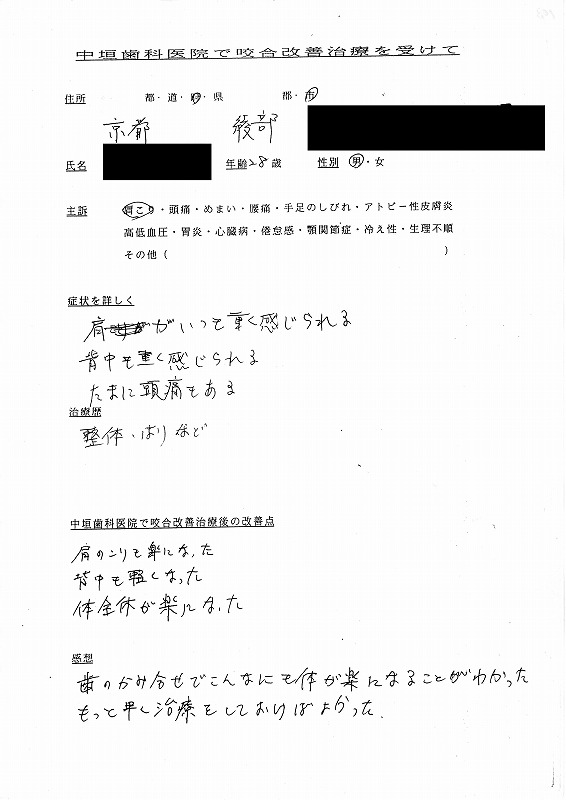 中垣歯科医院で咬合改善治療を受けて
住所 都・道・府・県 郡・市
京都 綾部
氏名 年齢28歳 性別 男・女
主訴 肩こり・頭痛・めまい・腰痛・手足のしびれ・アトピー性皮膚炎
高低血圧・胃炎・心臓病・倦怠感・顎関節症・冷え性・生理不順
その他( )
症状を詳しく
肩がいつも重く感じられる
背中も重く感じられる
たまに頭痛もある
治療歴
整体・はりなど
中垣歯科医院で咬合改善治療後の改善点
肩のこりも楽になった
背中も軽くなった
体全体が楽になった
感想
歯のかみ合せでこんなにも体が楽になることがわかった
もっと早く治療をしておけばよかった.